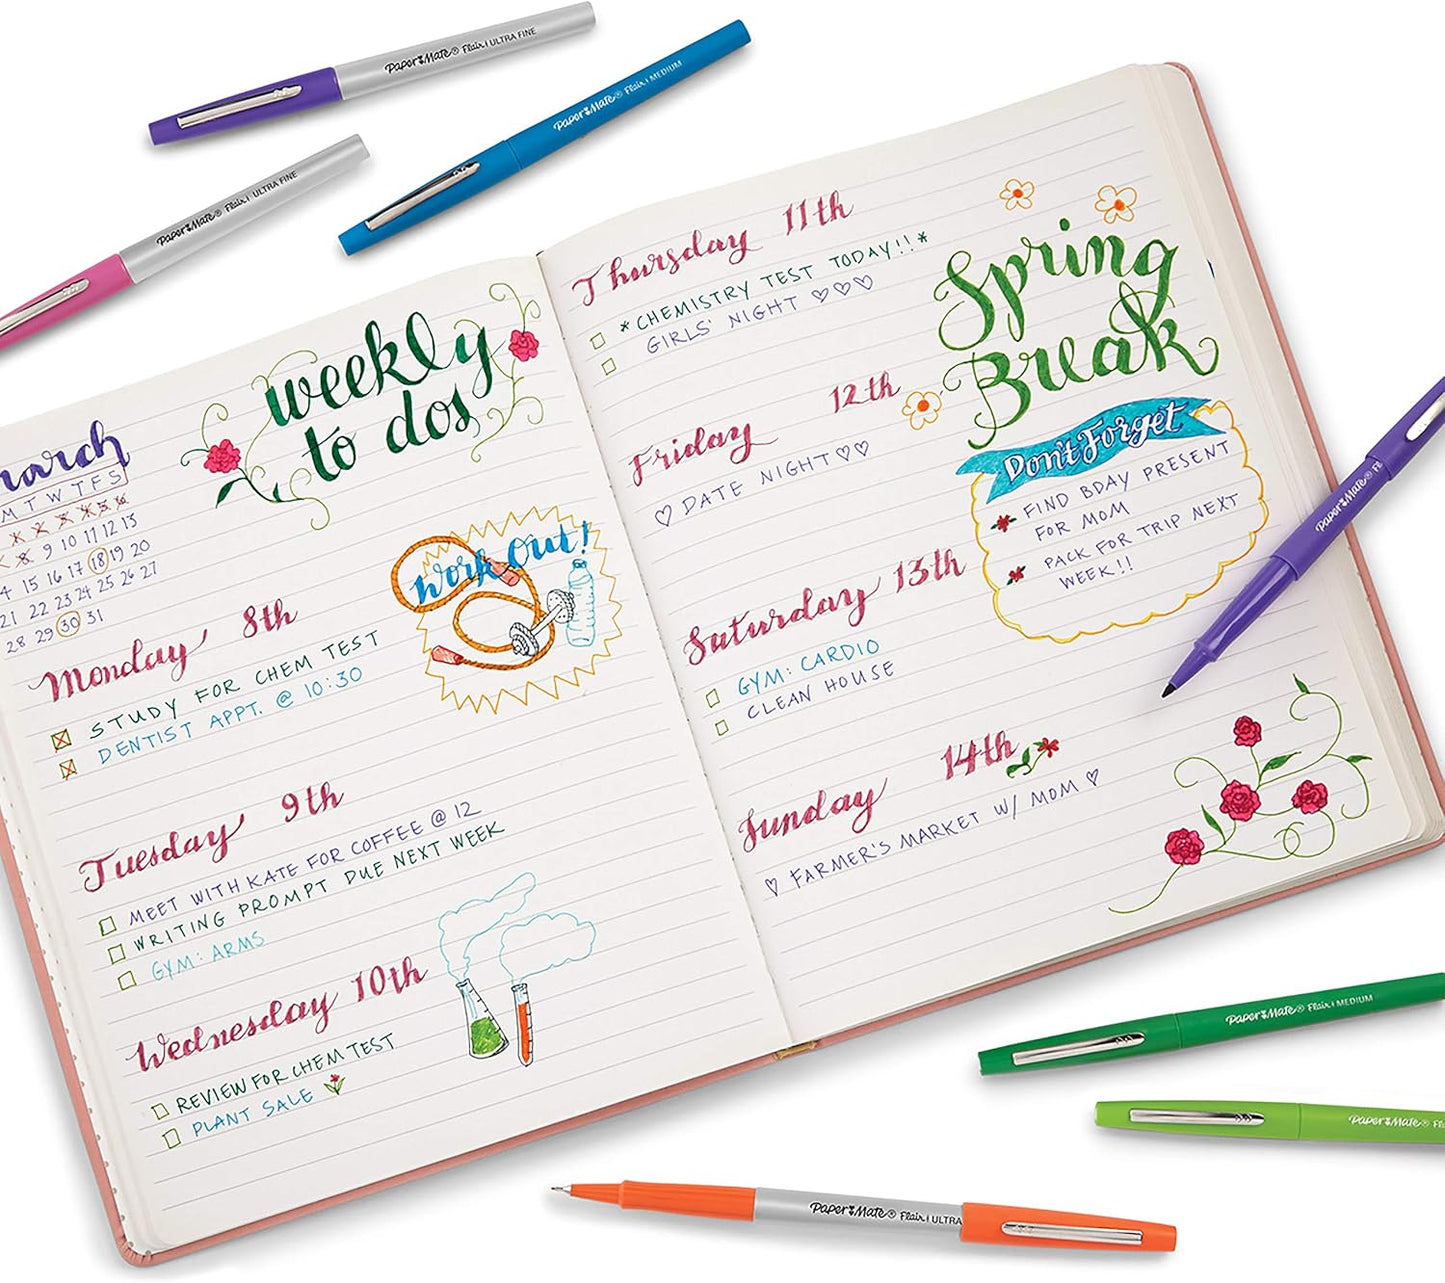 Paper Mate® Flair | ULTRA FINE
Paper Mate® Flair | MEDIUM
Paper Mate® Flair | ULTRA FINE
weekly
to dos
march
M T W T F S
9 10 11 12 13
14 15 16 17 18 19 20
21 22 23 24 25 26 27
28 29 30 31
Work Out!
Monday 8th
STUDY FOR CHEM TEST
DENTIST APPT. @ 10:30
Tuesday 9th
MEET WITH KATE FOR COFFEE @ 12
WRITING PROMPT DUE NEXT WEEK
GYM: ARMS
Wednesday 10th
REVIEW FOR CHEM TEST
PLANT SALE
Thursday 11th
*CHEMISTRY TEST TODAY!!*
GIRLS' NIGHT ♡♡♡
Friday 12th
♡ DATE NIGHT ♡♡
Saturday 13th
GYM: CARDIO
CLEAN HOUSE
Sunday 14th
♡ FARMER'S MARKET W/ MOM ♡
Spring
Break
Don't Forget
FIND BDAY PRESENT
FOR MOM
PACK FOR TRIP NEXT
WEEK!!
Paper Mate® FE
Paper Mate® Flair | MEDIUM
Paper Mate® Fla
Paper Mate® Flair | ULTRA